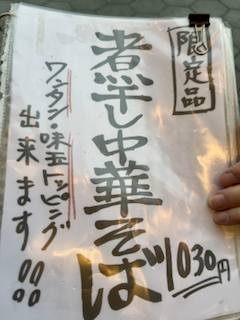 限定品
煮干し中華そば
1030円
ワンタン・味玉トッピング
出来ます!!